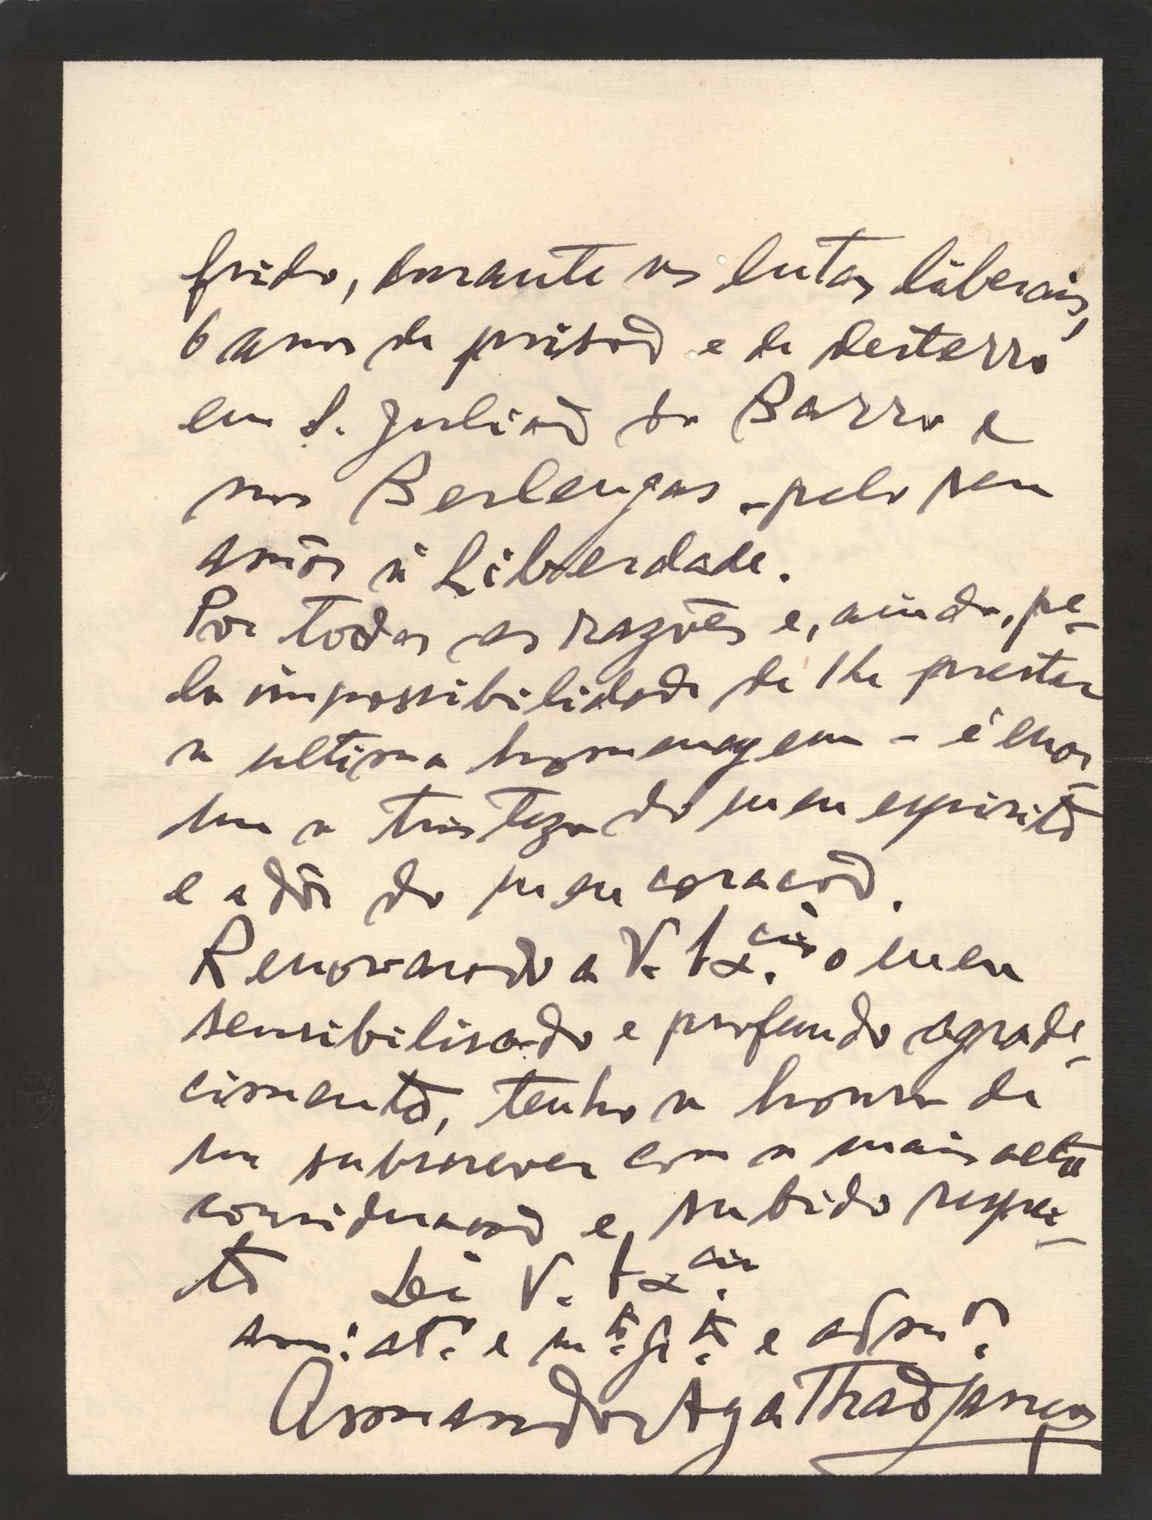 frido, durante as lutas liberais,
6 anos de prisão e de desterro
em S. Julião da Barra e
nas Berlengas - pelo seu
amôr à Liberdade.
Por todas as razões e, ainda, pe-
la impossibilidade de lhe prestar
a ultima homenagem - é enor-
me a tristeza do meu espirito
e a dôr do meu coração.
Renovando a V. Ex.cia o meu
sensibilisado e profundo agrade-
cimento, tenho a honra de
me subscrever com a mais alta
consideração e subido respei-
to De V. Ex.cia
am.º at.º e m.to gr.to e adm.or
Armando Agathão